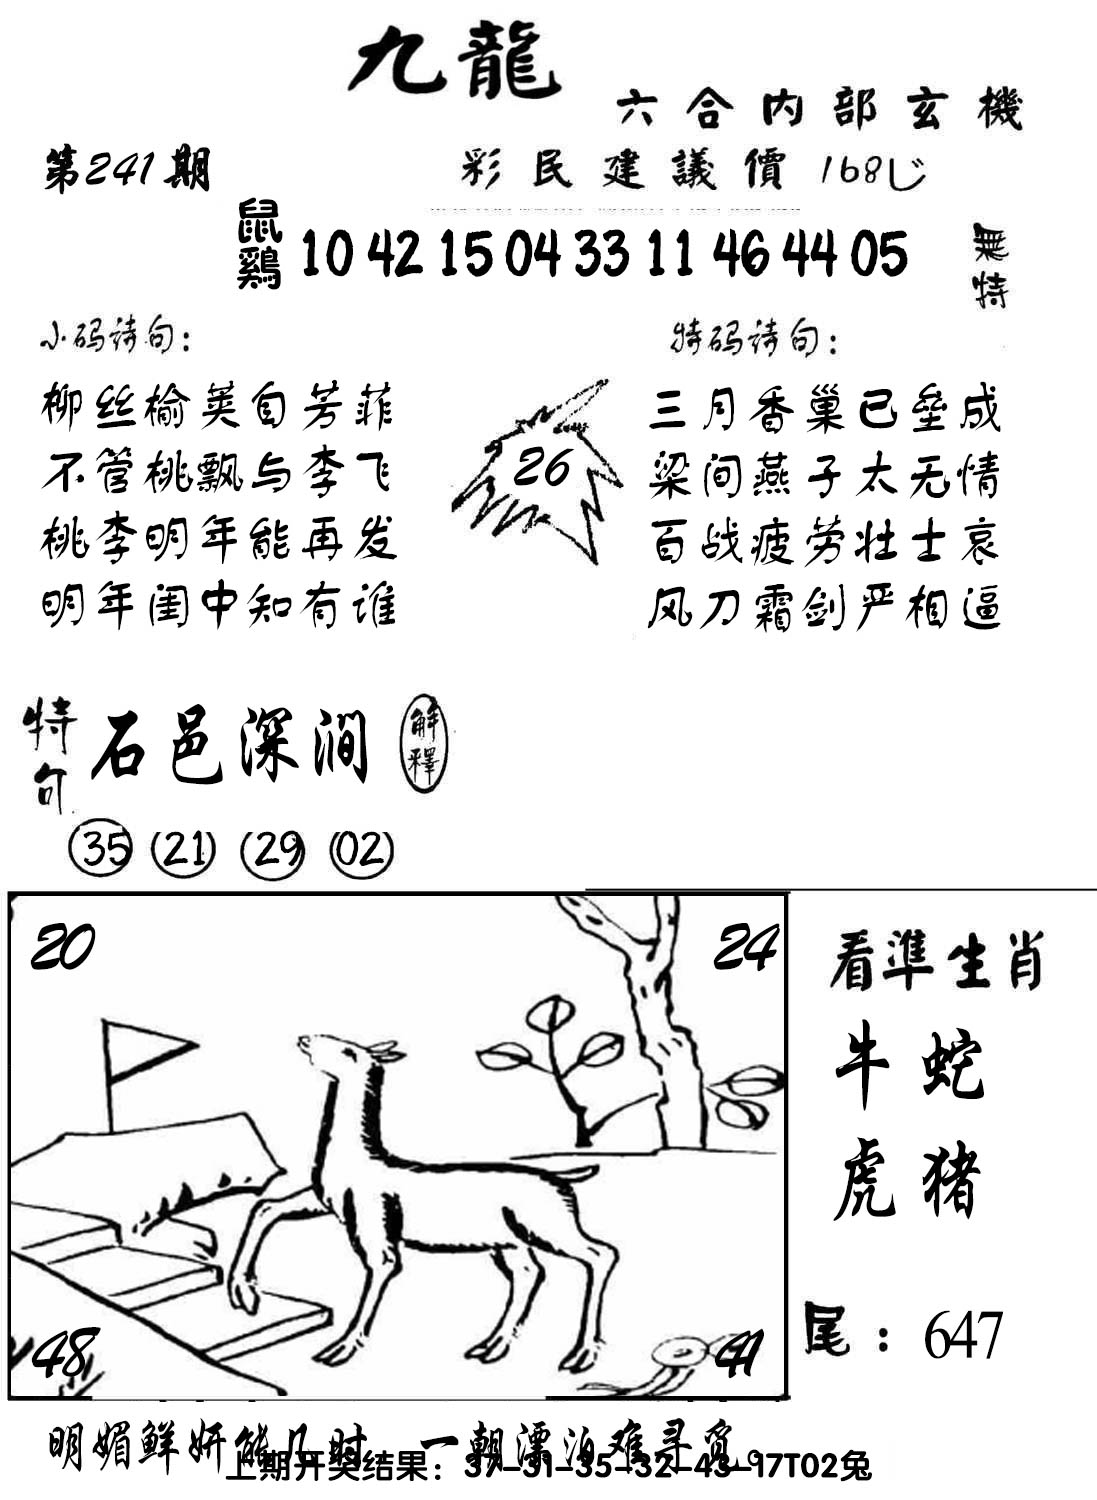 九龍
六合内部玄機
第241期
彩民建議價 168じ
鼠鷄 10 42 15 04 33 11 46 44 05 無特
小码诗句：
柳丝榆荚自芳菲
不管桃飘与李飞
桃李明年能再发
明年闺中知有谁
26
特码诗句：
三月香巢已垒成
梁间燕子太无情
百战疲劳壮士哀
风刀霜剑严相逼
特句 石邑深澗 解釋
35 21 29 02
20 24
48 41
看準生肖
牛蛇
虎猪
尾：647
明媚鲜妍能几时 一朝漂泊难寻觅。
上期开奖结果：37-31-35-32-43-17T02兔